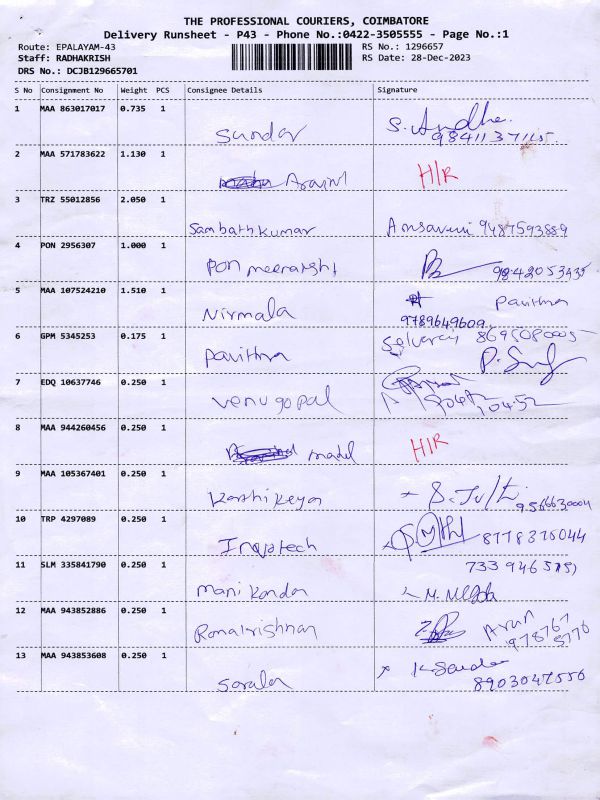 THE PROFESSIONAL COURIERS, COIMBATORE
Delivery Runsheet - P43 - Phone No.:0422-3505555 - Page No.:1
Route: EPALAYAM-43 RS No.: 1296657
Staff: RADHAKRISH RS Date: 28-Dec-2023
DRS No.: DCJB129665701
S No Consignment No Weight PCS Consignee Details Signature
1 MAA 863017017 0.735 1 Sundar S. Andhe.
2 MAA 571783622 1.130 1 Aravind H/R
3 TRZ 55012856 2.050 1 Sambathkumar 9487593889
4 PON 2956307 1.000 1 Pon meenatshi 9842053535
5 MAA 107524210 1.510 1 Nirmala Pavithra
9789649609
6 GPM 5345253 0.175 1 Pavithra
7 EDQ 10637746 0.250 1 venugopal
8 MAA 944260456 0.250 1 H/R
9 MAA 105367401 0.250 1 Karthikeyan
10 TRP 4297089 0.250 1 8778376044
11 SLM 335841790 0.250 1 Manikandan
12 MAA 943852886 0.250 1 Ramakrishnan Arun
13 MAA 943853608 0.250 1 Sarala
8903047556